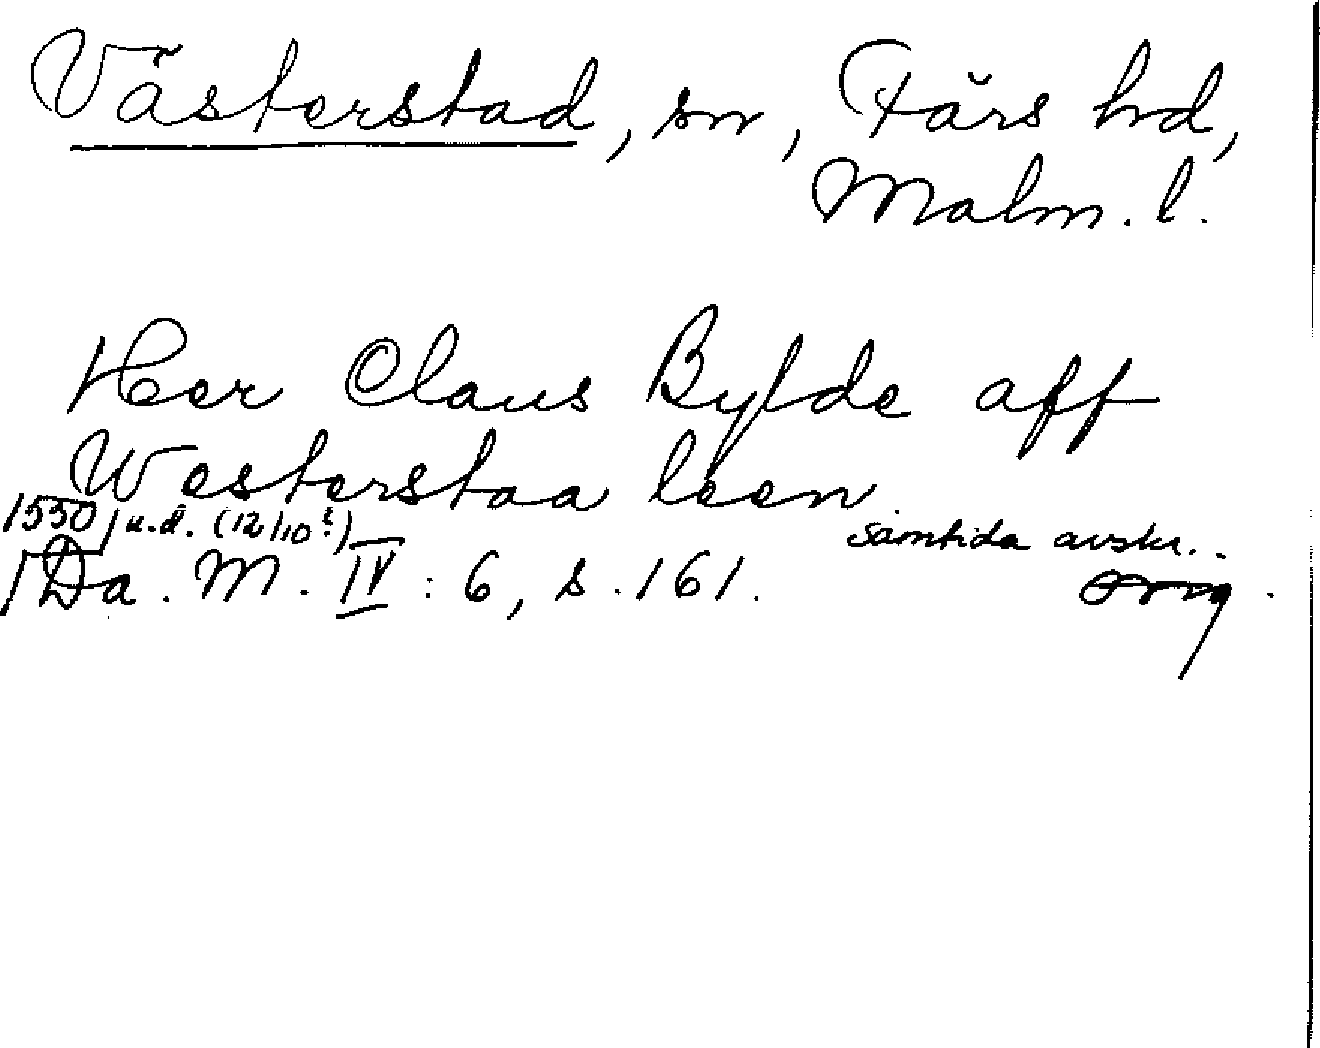 Västerstad, sn, Färs hd,
Malm. l.
Her Claus Bylde aff
Westerstaa leen
1550 u.d. (12/10?) samtida avskr..
Da. M. IV : 6, s. 161. orig.